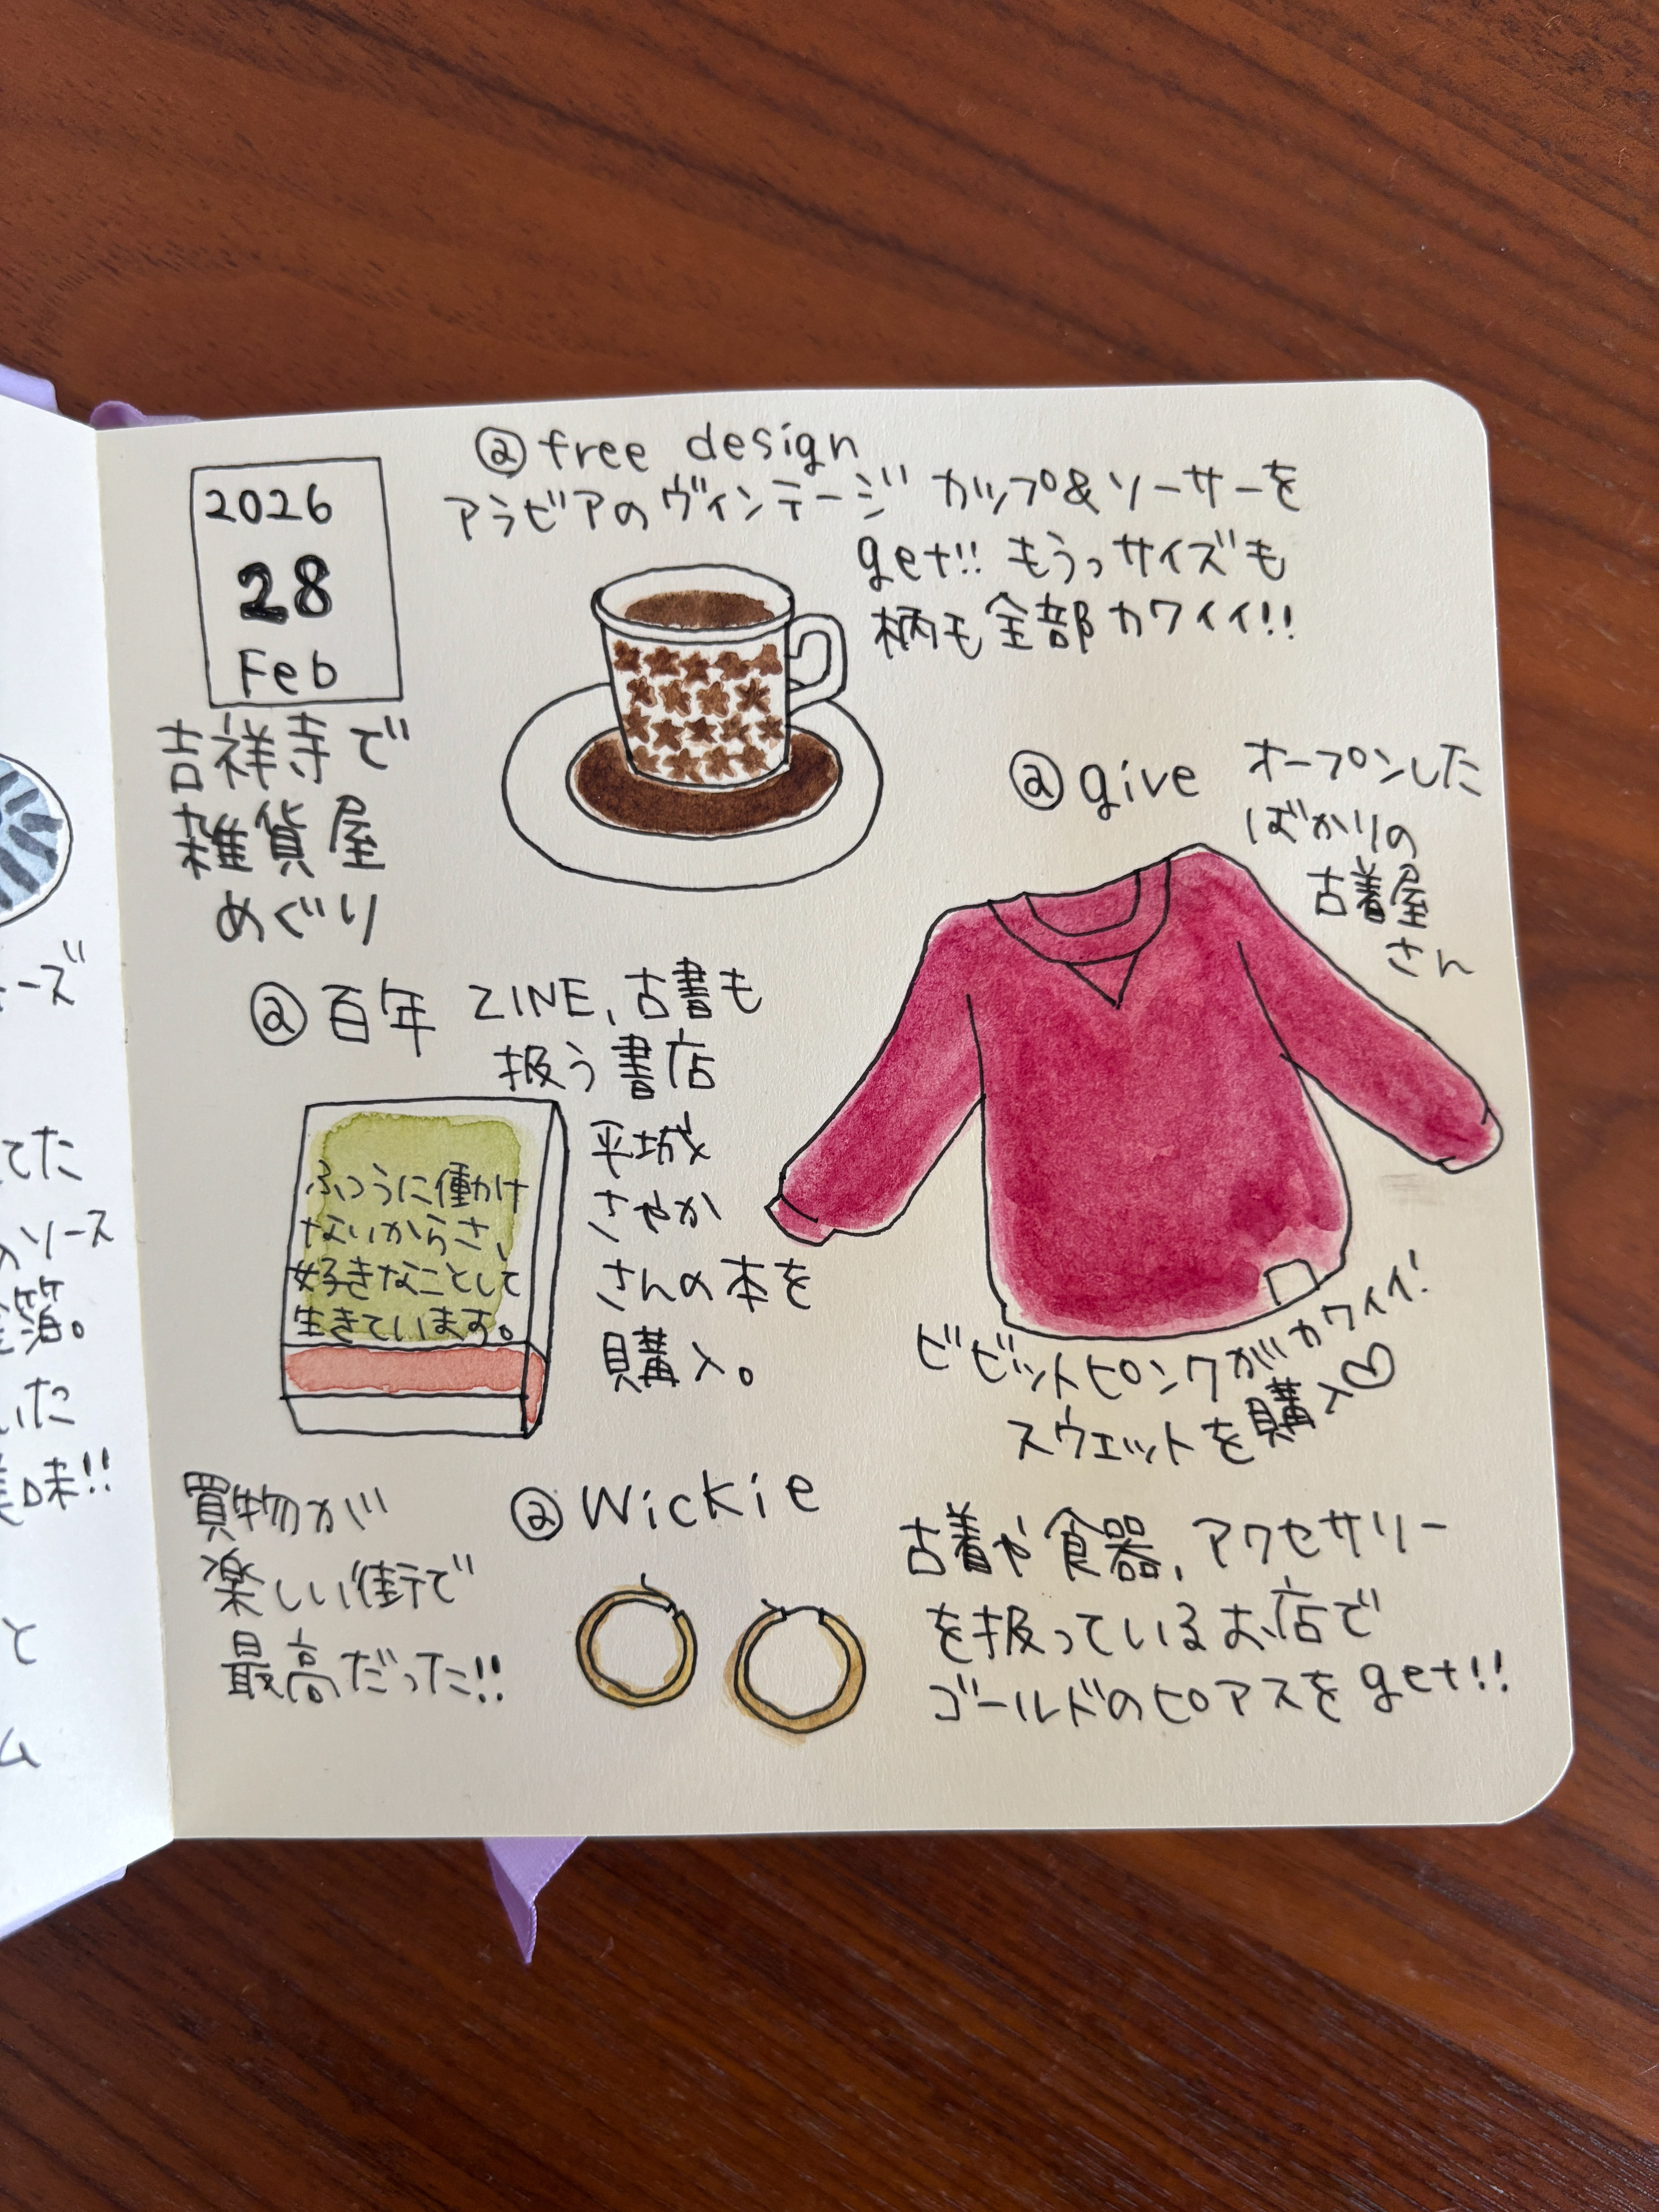 2026
28
Feb
吉祥寺で
雑貨屋
めぐり
@free design
アラビアのヴィンテージカップ&ソーサーを
get!! もうっサイズも
柄も全部カワイイ!!
@give
オープンした
ばかりの
古着屋
さん
ビビットピンクがカワイイ!
スウェットを購入♡
@百年
ZINE、古書も
扱う書店
平城
さやか
さんの本を
購入。
ふつうに働け
ないからさ、
好きなことして
生きています。
@Wickie
古着や食器、アクセサリー
を扱っているお店で
ゴールドのピアスをget!!
買物が
楽しい街で
最高だった!!
ーズ
てた
ソース
箔。
いた
味!!
と
ム